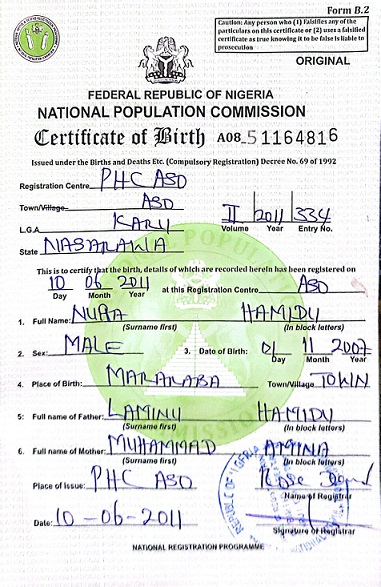 Form B.2
Caution: Any person who (1) Falsifies any of the
particulars on this certificate or (2) uses a falsified
certificate as true knowing it to be false is liable to
prosecution
ORIGINAL
FEDERAL REPUBLIC OF NIGERIA
NATIONAL POPULATION COMMISSION
Certificate of Birth A08 51164816
Issued under the Births and Deaths Etc. (Compulsory Registration) Decree No. 69 of 1992
Registration Centre PHC ASO
Town/Village ASO
L.G.A KARU II 2011 334
Volume Year Entry No.
State NASARAWA
This is to certify that the birth, details of which are recorded herein has been registered on
10 06 2011 at this Registration Centre ASO
Day Month Year
1. Full Name: NURA HAMIDU
(Surname first) (In block letters)
2. Sex: MALE 3. Date of Birth: 01 11 2007
Day Month Year
4. Place of Birth: MARARABA Town/Village TOWN
5: Full name of Father: LAMINU HAMIDU
(Surname first) (In block letters)
6. Full name of Mother: MUHAMMAD AMINA
(Surname first) (In block letters)
Place of Issue: PHC ASO Rose
Name of Registrar
Date: 10-06-2011
Signature of Registrar
NATIONAL REGISTRATION PROGRAMME